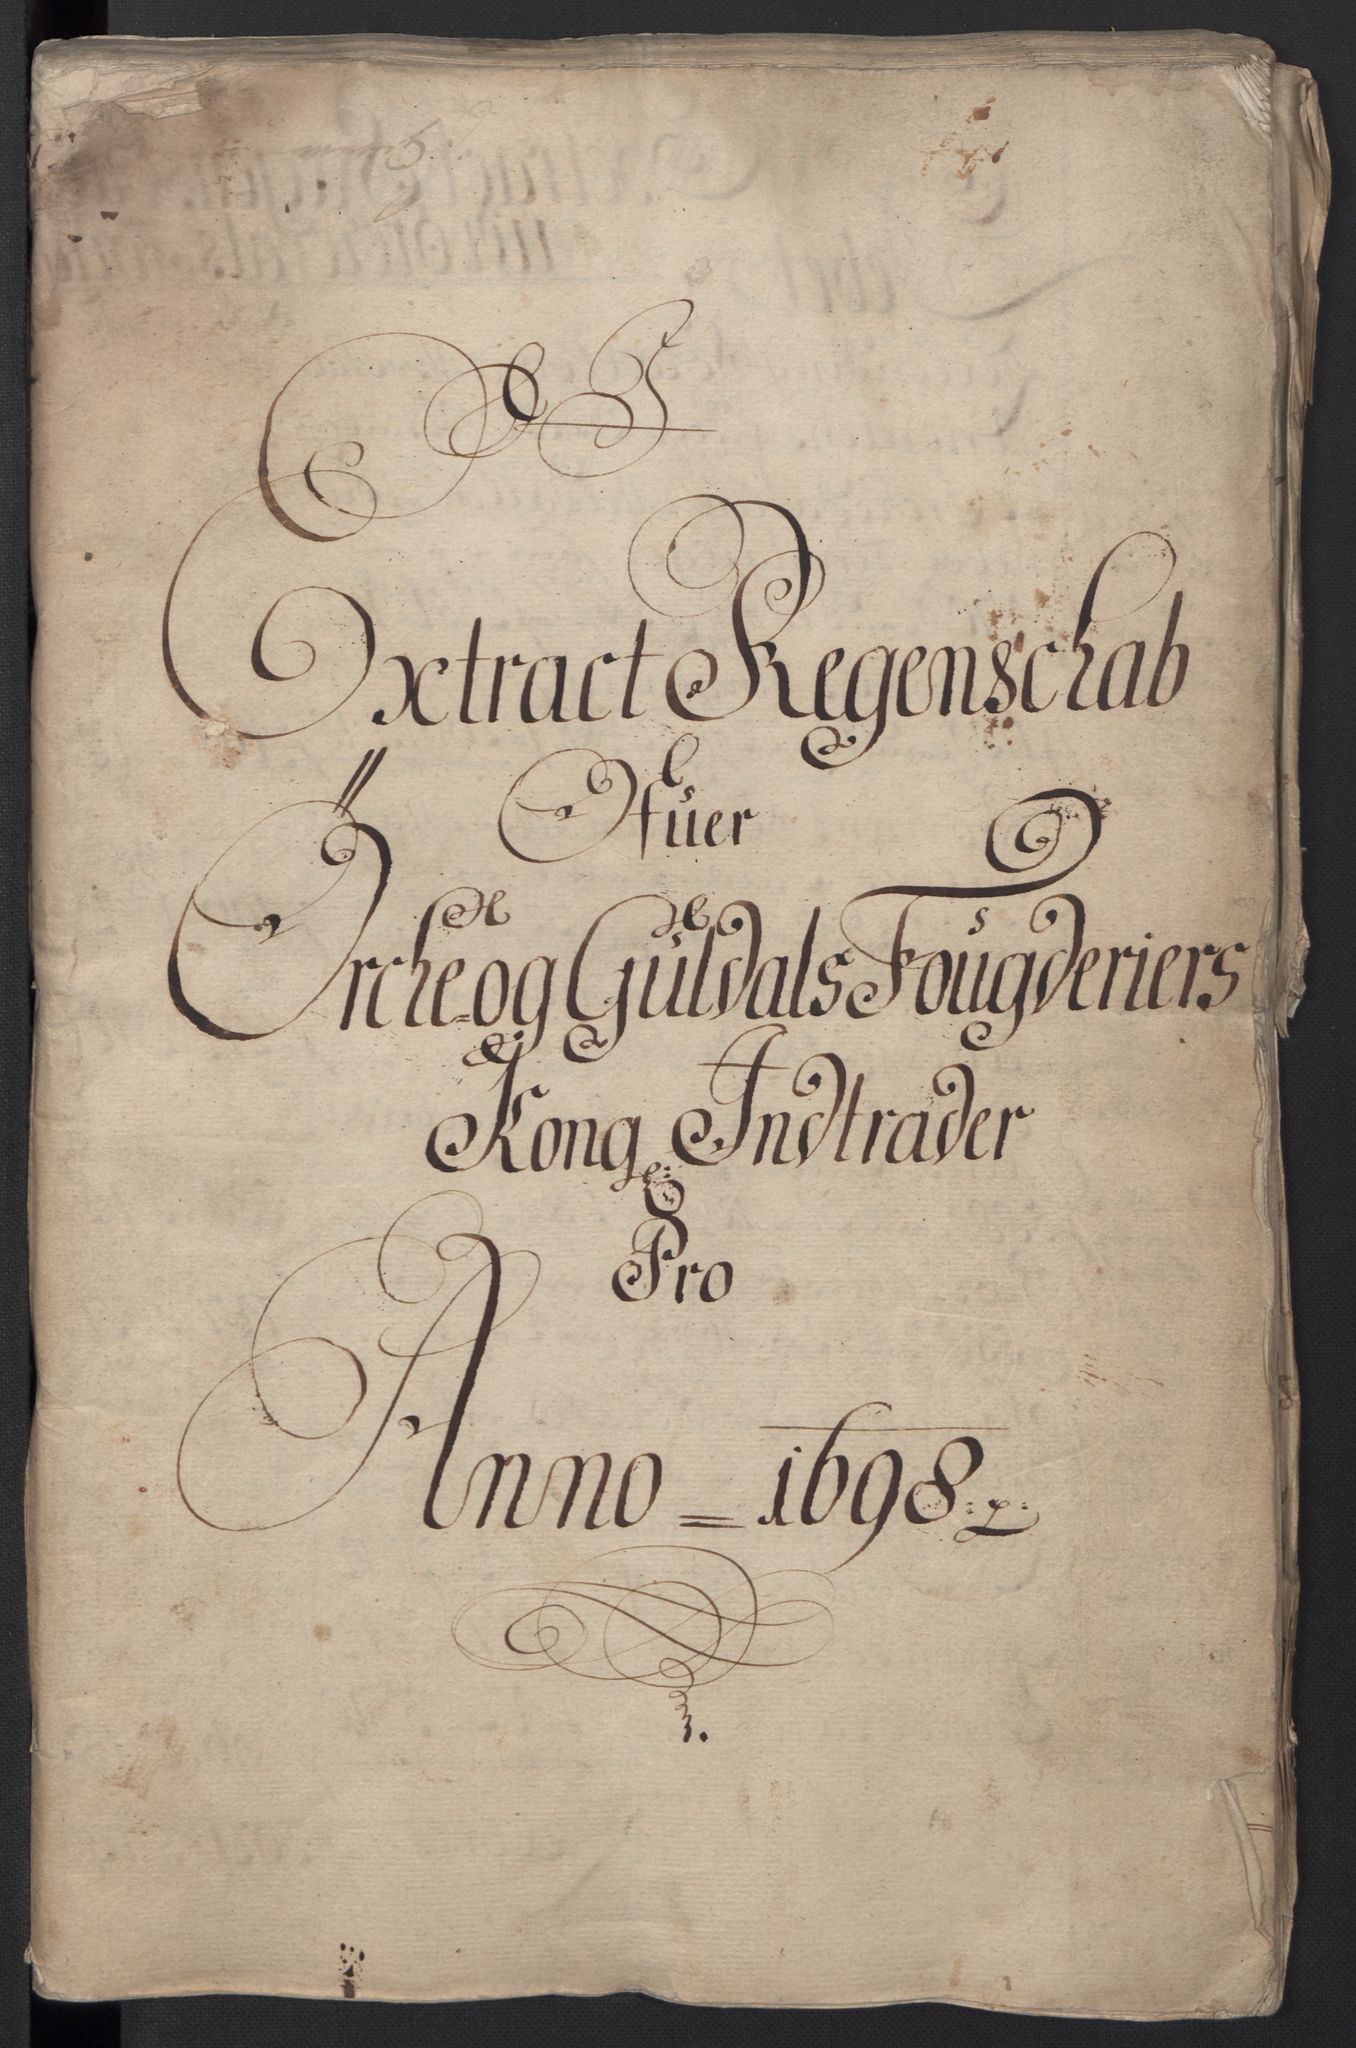 Extract Regenschab
Ofuer
Örche og Guldals Fougderiers
Kong: Indtrader
Pro
Anno = 1698